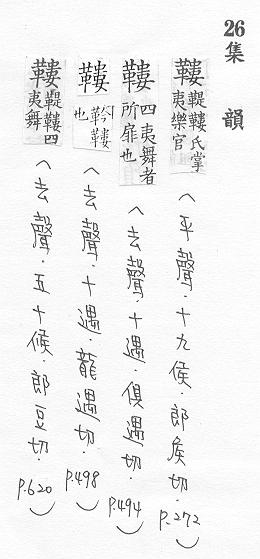 26集　韻
鞻鞮鞻氏掌夷樂官（平聲．十九侯．郎矦切．P.272）
鞻四夷舞者所屝也（去聲．十遇．俱遇切．P.494）
鞻䩭鞻也（去聲．十遇．龍遇切．P.498）
鞻鞮鞻四夷舞（去聲．五十候．郎豆切．P.620）